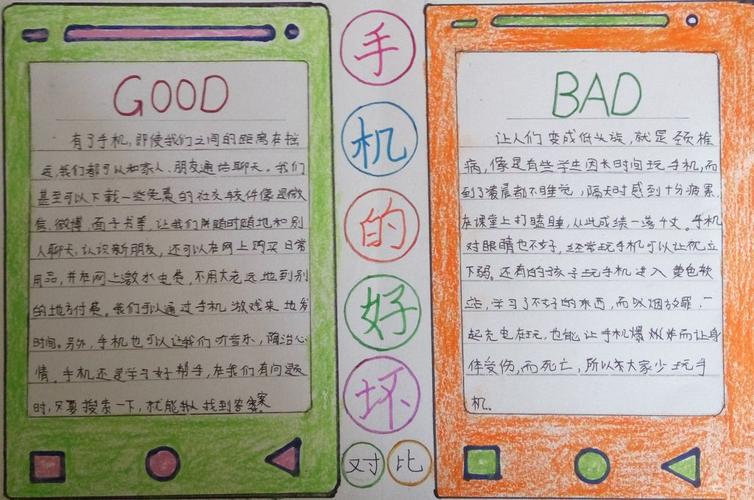 GOOD
有了手机,即使我们之间的距离在摇
远,我们都可以和家人、朋友通话聊天。我们
甚至可以下载一些免费的社交软件像是微
信、微博、面子书等,让我们随时随地和别
人聊天、认识新朋友,还可以在网上购买日常
用品,并在网上缴水电费,不用大老远地到别
的地方付费。我们可以通过手机游戏来地发
时间。另外,手机也可以让我们听音乐,陶冶心
情。手机还是学习好帮手,在我们有问题
时,只要搜索一下,就能找到答案
手
机
的
好
坏
对比
BAD
让人们变成低头族,就是颈椎
病,像是有些学生因长时间玩手机,而
到了凌晨都不睡觉,隔天时感到十分疲累,
在课堂上打瞌睡,从此成绩一落千丈。手机
对眼睛也不好,经常玩手机可以让视立
下弱。还有的孩子玩手机进入黄色软
学习了不好的东西,而以烟放罪,一
起充电在玩,也能让手机爆炸而让身
体受伤,而死亡,所以大家少玩手
机。